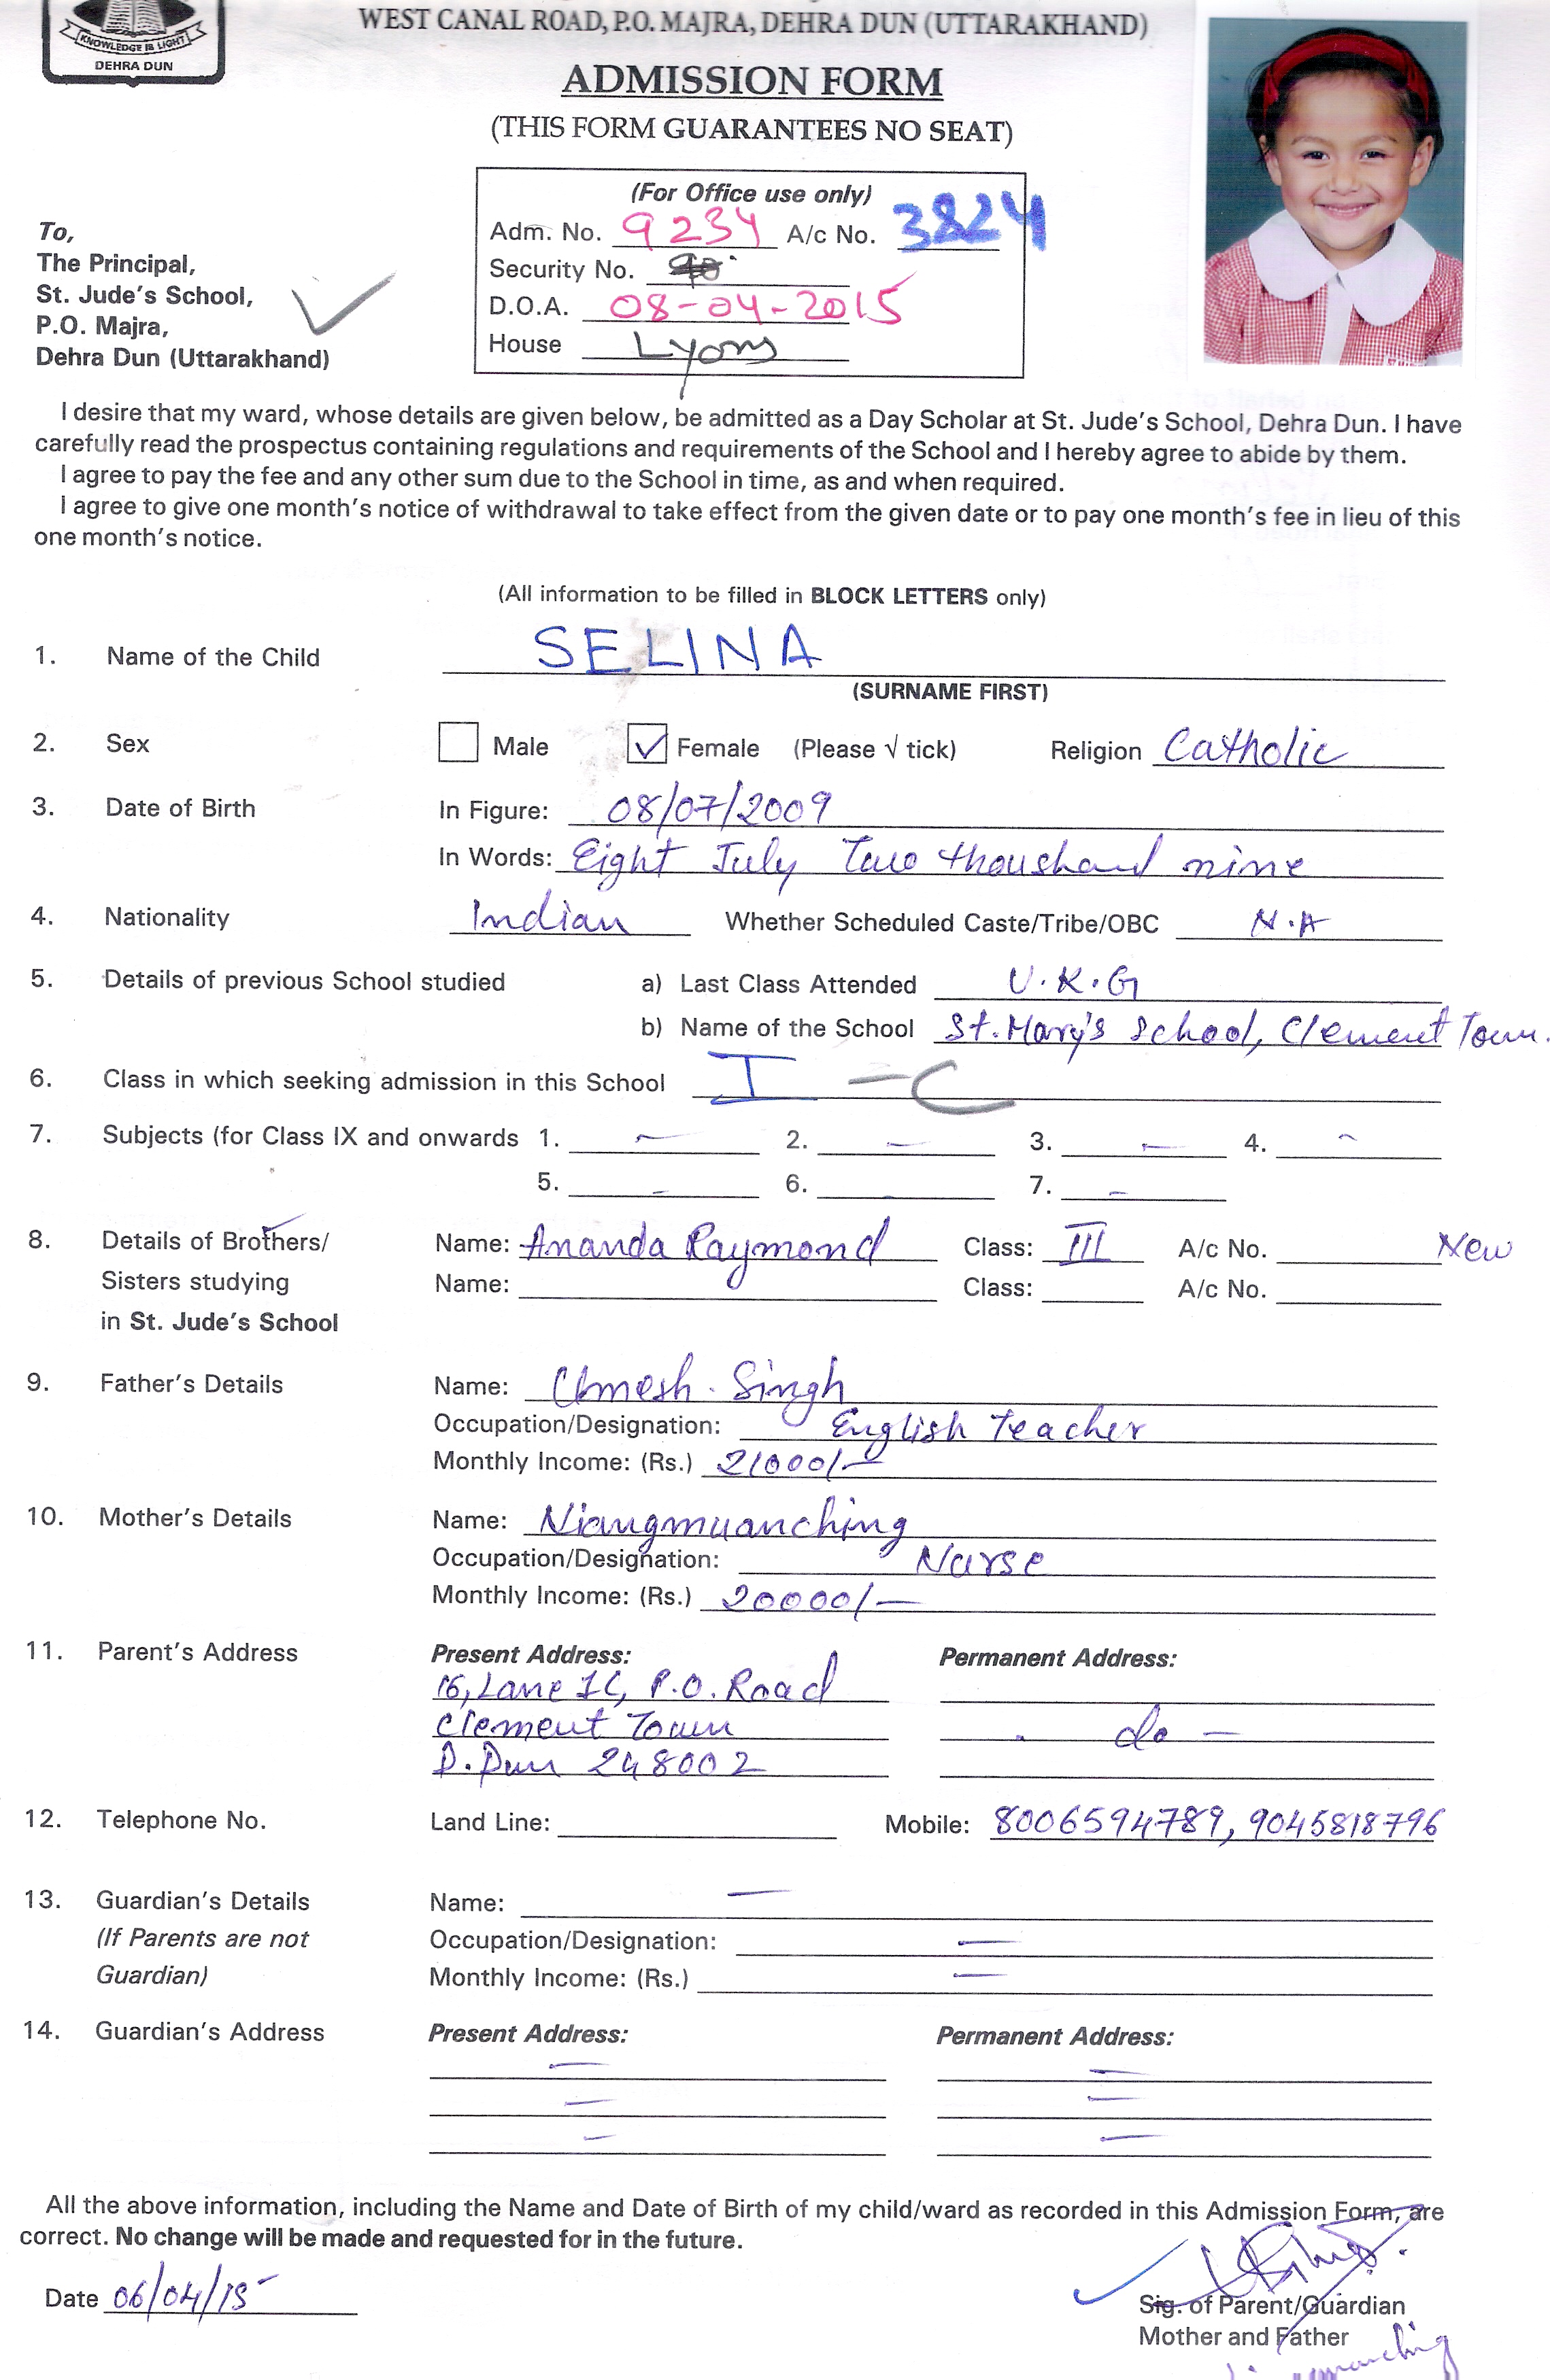 KNOWLEDGE IS LIGHT
DEHRA DUN
WEST CANAL ROAD, P.O. MAJRA, DEHRA DUN (UTTARAKHAND)
ADMISSION FORM
(THIS FORM GUARANTEES NO SEAT)
(For Office use only)
Adm. No. 9234 A/c No. 3824
Security No.
D.O.A. 08-04-2015
House Lyons
To,
The Principal,
St. Jude's School,
P.O. Majra,
Dehra Dun (Uttarakhand)
I desire that my ward, whose details are given below, be admitted as a Day Scholar at St. Jude's School, Dehra Dun. I have
carefully read the prospectus containing regulations and requirements of the School and I hereby agree to abide by them.
I agree to pay the fee and any other sum due to the School in time, as and when required.
I agree to give one month's notice of withdrawal to take effect from the given date or to pay one month's fee in lieu of this
one month's notice.
(All information to be filled in BLOCK LETTERS only)
1. Name of the Child SELINA
(SURNAME FIRST)
2. Sex Male ✓ Female (Please √ tick) Religion Catholic
3. Date of Birth In Figure: 08/07/2009
In Words: Eight July Two thoushand nine
4. Nationality Indian Whether Scheduled Caste/Tribe/OBC N.A
5. Details of previous School studied a) Last Class Attended U.K.G
b) Name of the School St. Mary's School, Clement Town.
6. Class in which seeking admission in this School I - C
7. Subjects (for Class IX and onwards 1. - 2. - 3. - 4. -
5. - 6. - 7. -
8. Details of Brothers/ Name: Ananda Raymond Class: III A/c No. New
Sisters studying Name: Class: A/c No.
in St. Jude's School
9. Father's Details Name: Umesh. Singh
Occupation/Designation: English Teacher
Monthly Income: (Rs.) 21000/-
10. Mother's Details Name: Niangmuanching
Occupation/Designation: Nurse
Monthly Income: (Rs.) 20000/-
11. Parent's Address Present Address: Permanent Address:
16, Lane 1C, P.O. Road
Clement Town - do -
D. Dun 248002
12. Telephone No. Land Line: Mobile: 8006594789, 9045818796
13. Guardian's Details Name: -
(If Parents are not Occupation/Designation: -
Guardian) Monthly Income: (Rs.) -
14. Guardian's Address Present Address: Permanent Address:
- -
- -
- -
All the above information, including the Name and Date of Birth of my child/ward as recorded in this Admission Form, are
correct. No change will be made and requested for in the future.
Date 06/04/15
Sig. of Parent/Guardian
Mother and Father